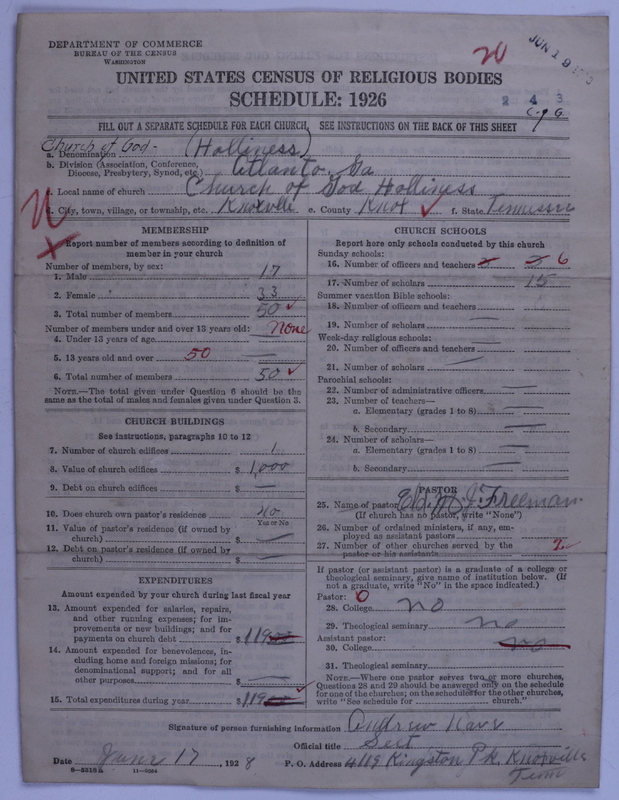 DEPARTMENT OF COMMERCE
BUREAU OF THE CENSUS
WASHINGTON
20
JUN 19
UNITED STATES CENSUS OF RELIGIOUS BODIES
SCHEDULE: 1926
2 4 3
C of G
FILL OUT A SEPARATE SCHEDULE FOR EACH CHURCH. SEE INSTRUCTIONS ON THE BACK OF THIS SHEET
Church of God - (Holliness)
a. Denomination
b. Division (Association, Conference, Diocese, Presbytery, Synod, etc.) Atlanta, Ga
c. Local name of church Church of God Holliness
d. City, town, village, or township, etc. Knoxville e. County Knox f. State Tennessee
MEMBERSHIP
Report number of members according to definition of member in your church
Number of members, by sex:
1. Male 17
2. Female 33
3. Total number of members 50
Number of members under and over 13 years old:
4. Under 13 years of age None
5. 13 years old and over 50 —
6. Total number of members 50
NOTE.—The total given under Question 6 should be the same as the total of males and females given under Question 3.
CHURCH BUILDINGS
See instructions, paragraphs 10 to 12
7. Number of church edifices 1
8. Value of church edifices $ 1,000
9. Debt on church edifices $ —
10. Does church own pastor's residence no
Yes or No
11. Value of pastor's residence (if owned by church) $ —
12. Debt on pastor's residence (if owned by church) $ —
EXPENDITURES
Amount expended by your church during last fiscal year
13. Amount expended for salaries, repairs, and other running expenses; for improvements or new buildings; and for payments on church debt $ 119 00
14. Amount expended for benevolences, including home and foreign missions; for denominational support; and for all other purposes $ —
15. Total expenditures during year $ 119 00
CHURCH SCHOOLS
Report here only schools conducted by this church
Sunday schools:
16. Number of officers and teachers 6
17. Number of scholars 15
Summer vacation Bible schools:
18. Number of officers and teachers —
19. Number of scholars —
Week-day religious schools:
20. Number of officers and teachers —
21. Number of scholars —
Parochial schools:
22. Number of administrative officers —
23. Number of teachers—
a. Elementary (grades 1 to 8) —
b. Secondary —
24. Number of scholars—
a. Elementary (grades 1 to 8) —
b. Secondary —
PASTOR
25. Name of pastor Eld. M. J. Freeman
(If church has no pastor, write "None")
26. Number of ordained ministers, if any, employed as assistant pastors —
27. Number of other churches served by the pastor or his assistants 2
If pastor (or assistant pastor) is a graduate of a college or theological seminary, give name of institution below. (If not a graduate, write "No" in the space indicated.)
Pastor: 0
28. College no
29. Theological seminary no
Assistant pastor:
30. College no
31. Theological seminary
NOTE.—Where one pastor serves two or more churches, Questions 28 and 29 should be answered only on the schedule for one of the churches; on the schedules for the other churches, write "See schedule for church."
Signature of person furnishing information Andrew
Official title
Date June 17, 1928 P. O. Address 4119 Kingston Pk. Knoxville
Tenn
8-5518 11-9064